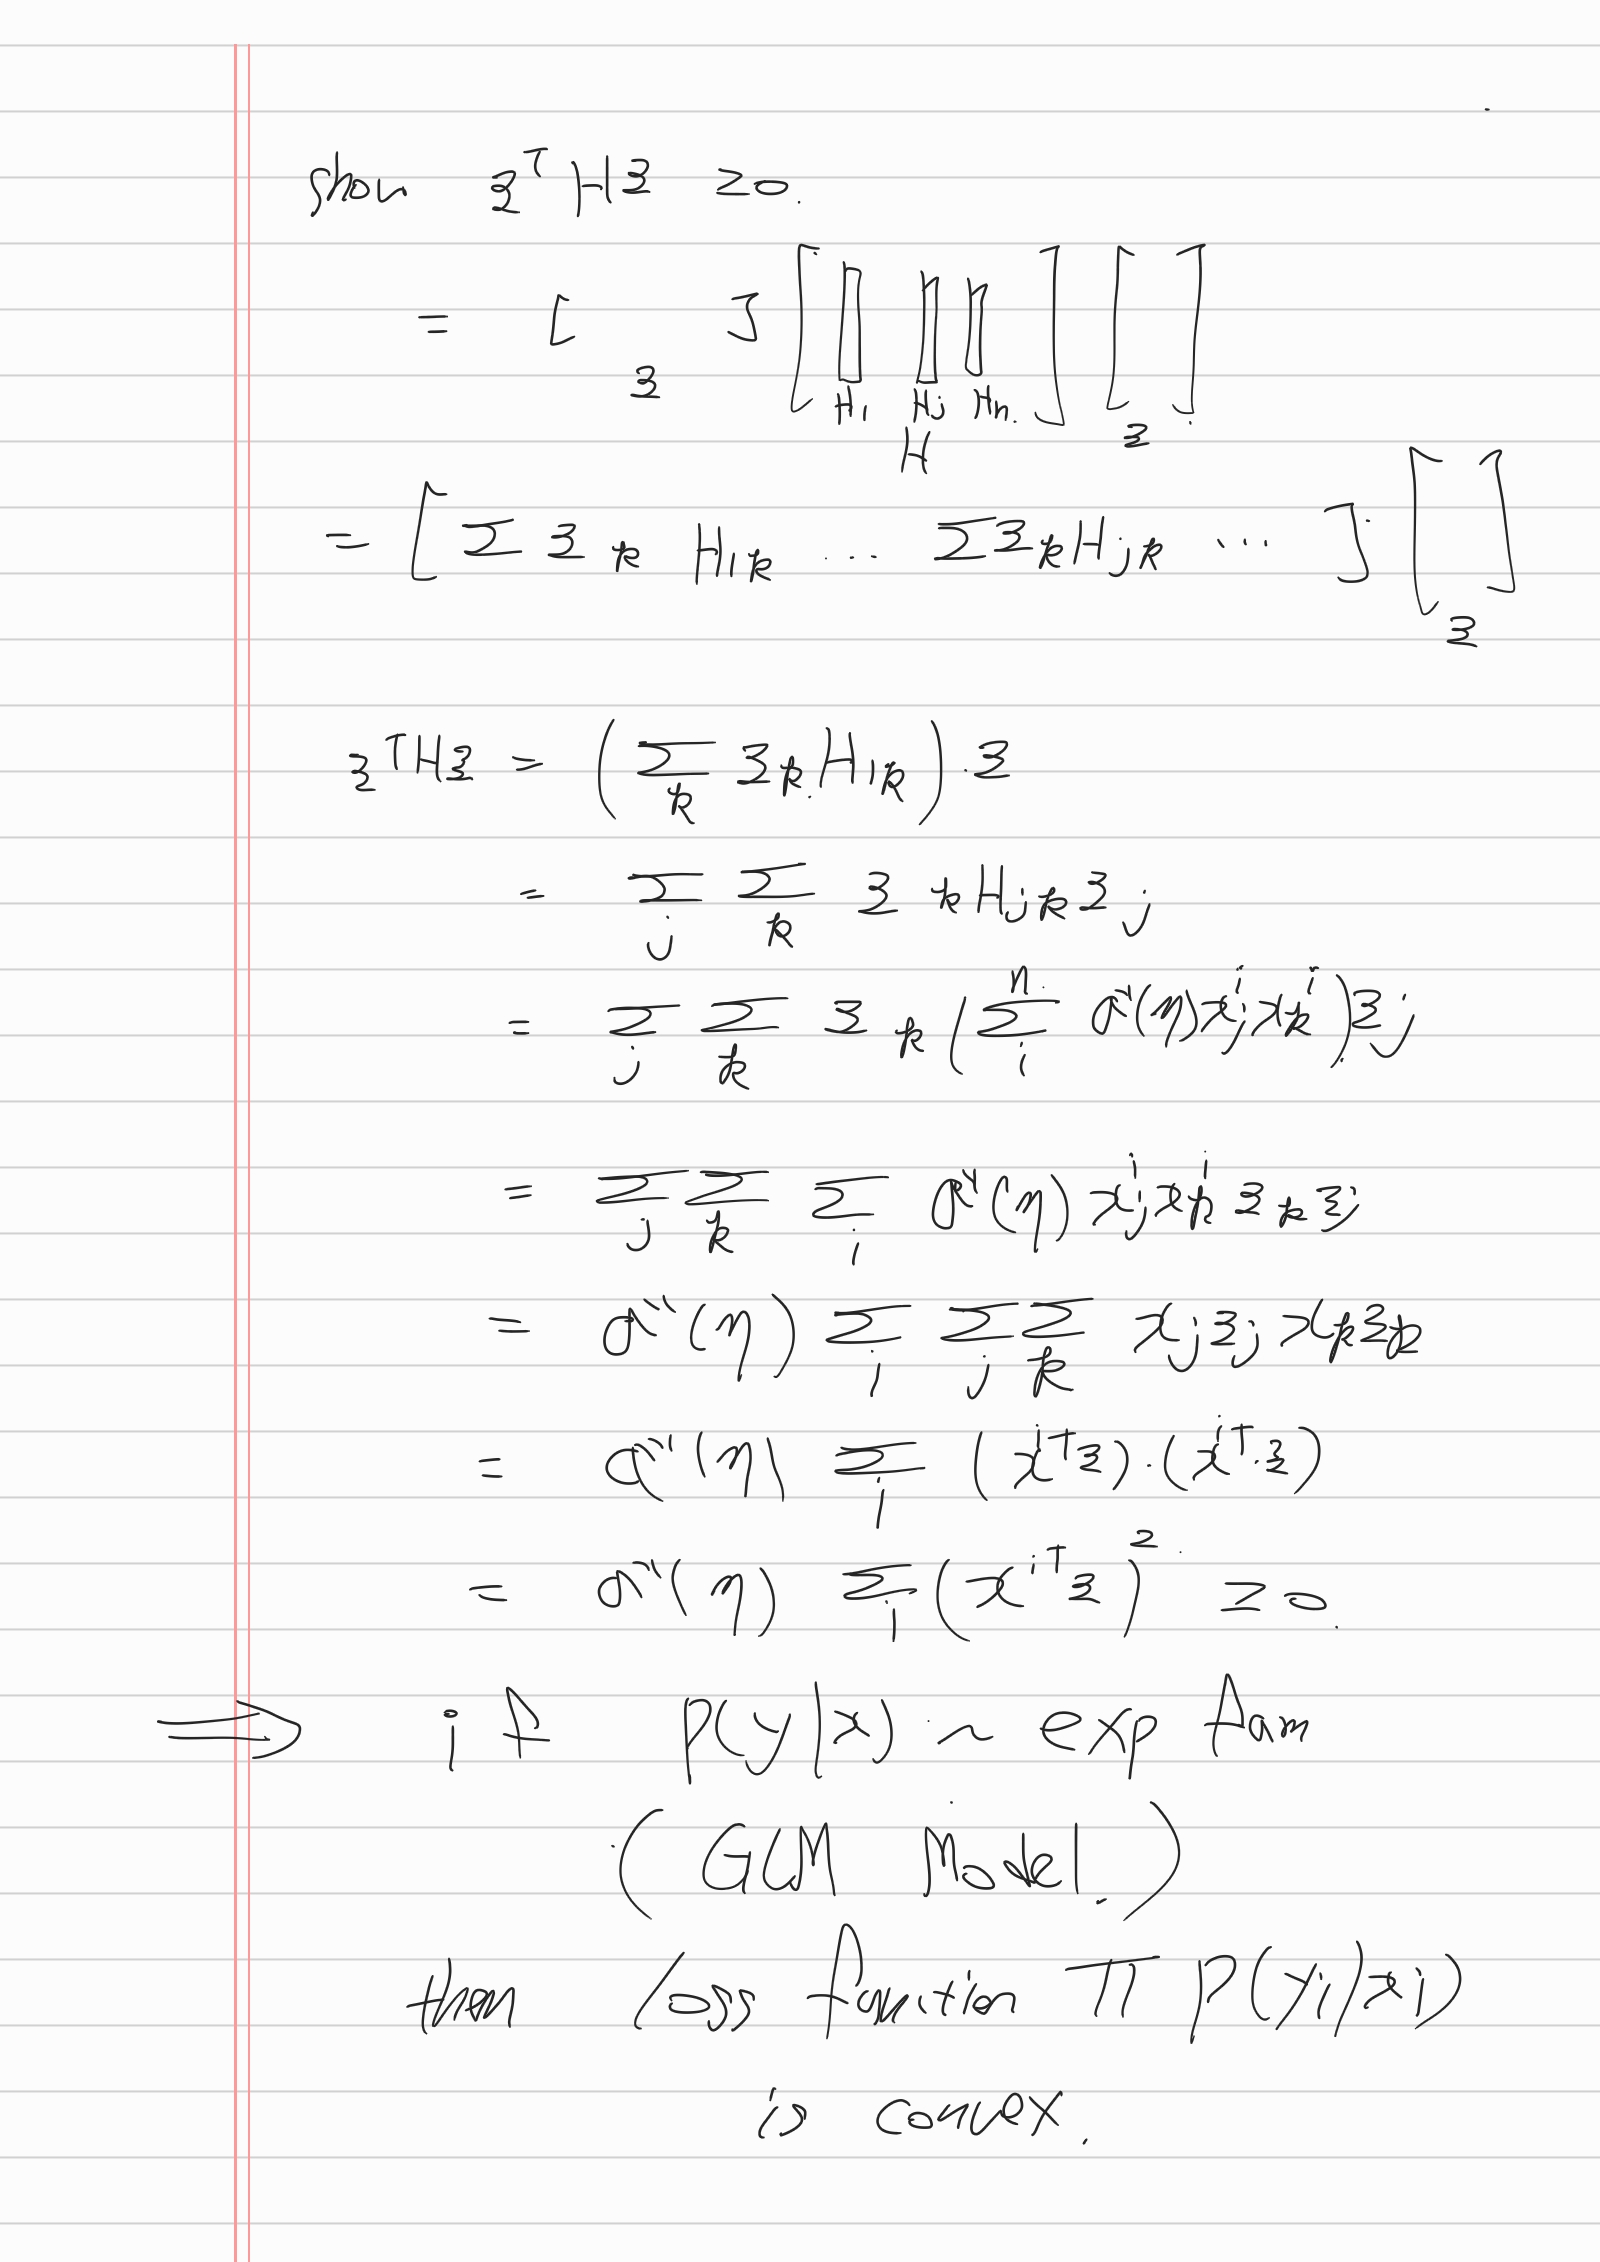 show z^T H z ≥ 0.
= [ ] [ ] [ ]
z H_1 H_j H_n. z
H
= [ Σ z_k H_{1k} ... Σ z_k H_{jk} ... ] [ ]
z
z^T H z = ( Σ_k z_k H_{1k} ) · z
= Σ_j Σ_k z_k H_{jk} z_j
= Σ_j Σ_k z_k ( Σ_i^n a''(η) x_j^i x_k^i ) z_j
= Σ_j Σ_k Σ_i a''(η) x_j^i x_k^i z_k z_j
= a''(η) Σ_i Σ_j Σ_k x_j z_j x_k z_k
= a''(η) Σ_i (x^{iT} z) · (x^{iT} · z)
= a''(η) Σ_i (x^{iT} z)^2 ≥ 0.
⟹ if P(y|x) ~ exp fam
(GLM Model.)
then loss function Π P(yi|xi)
is convex.